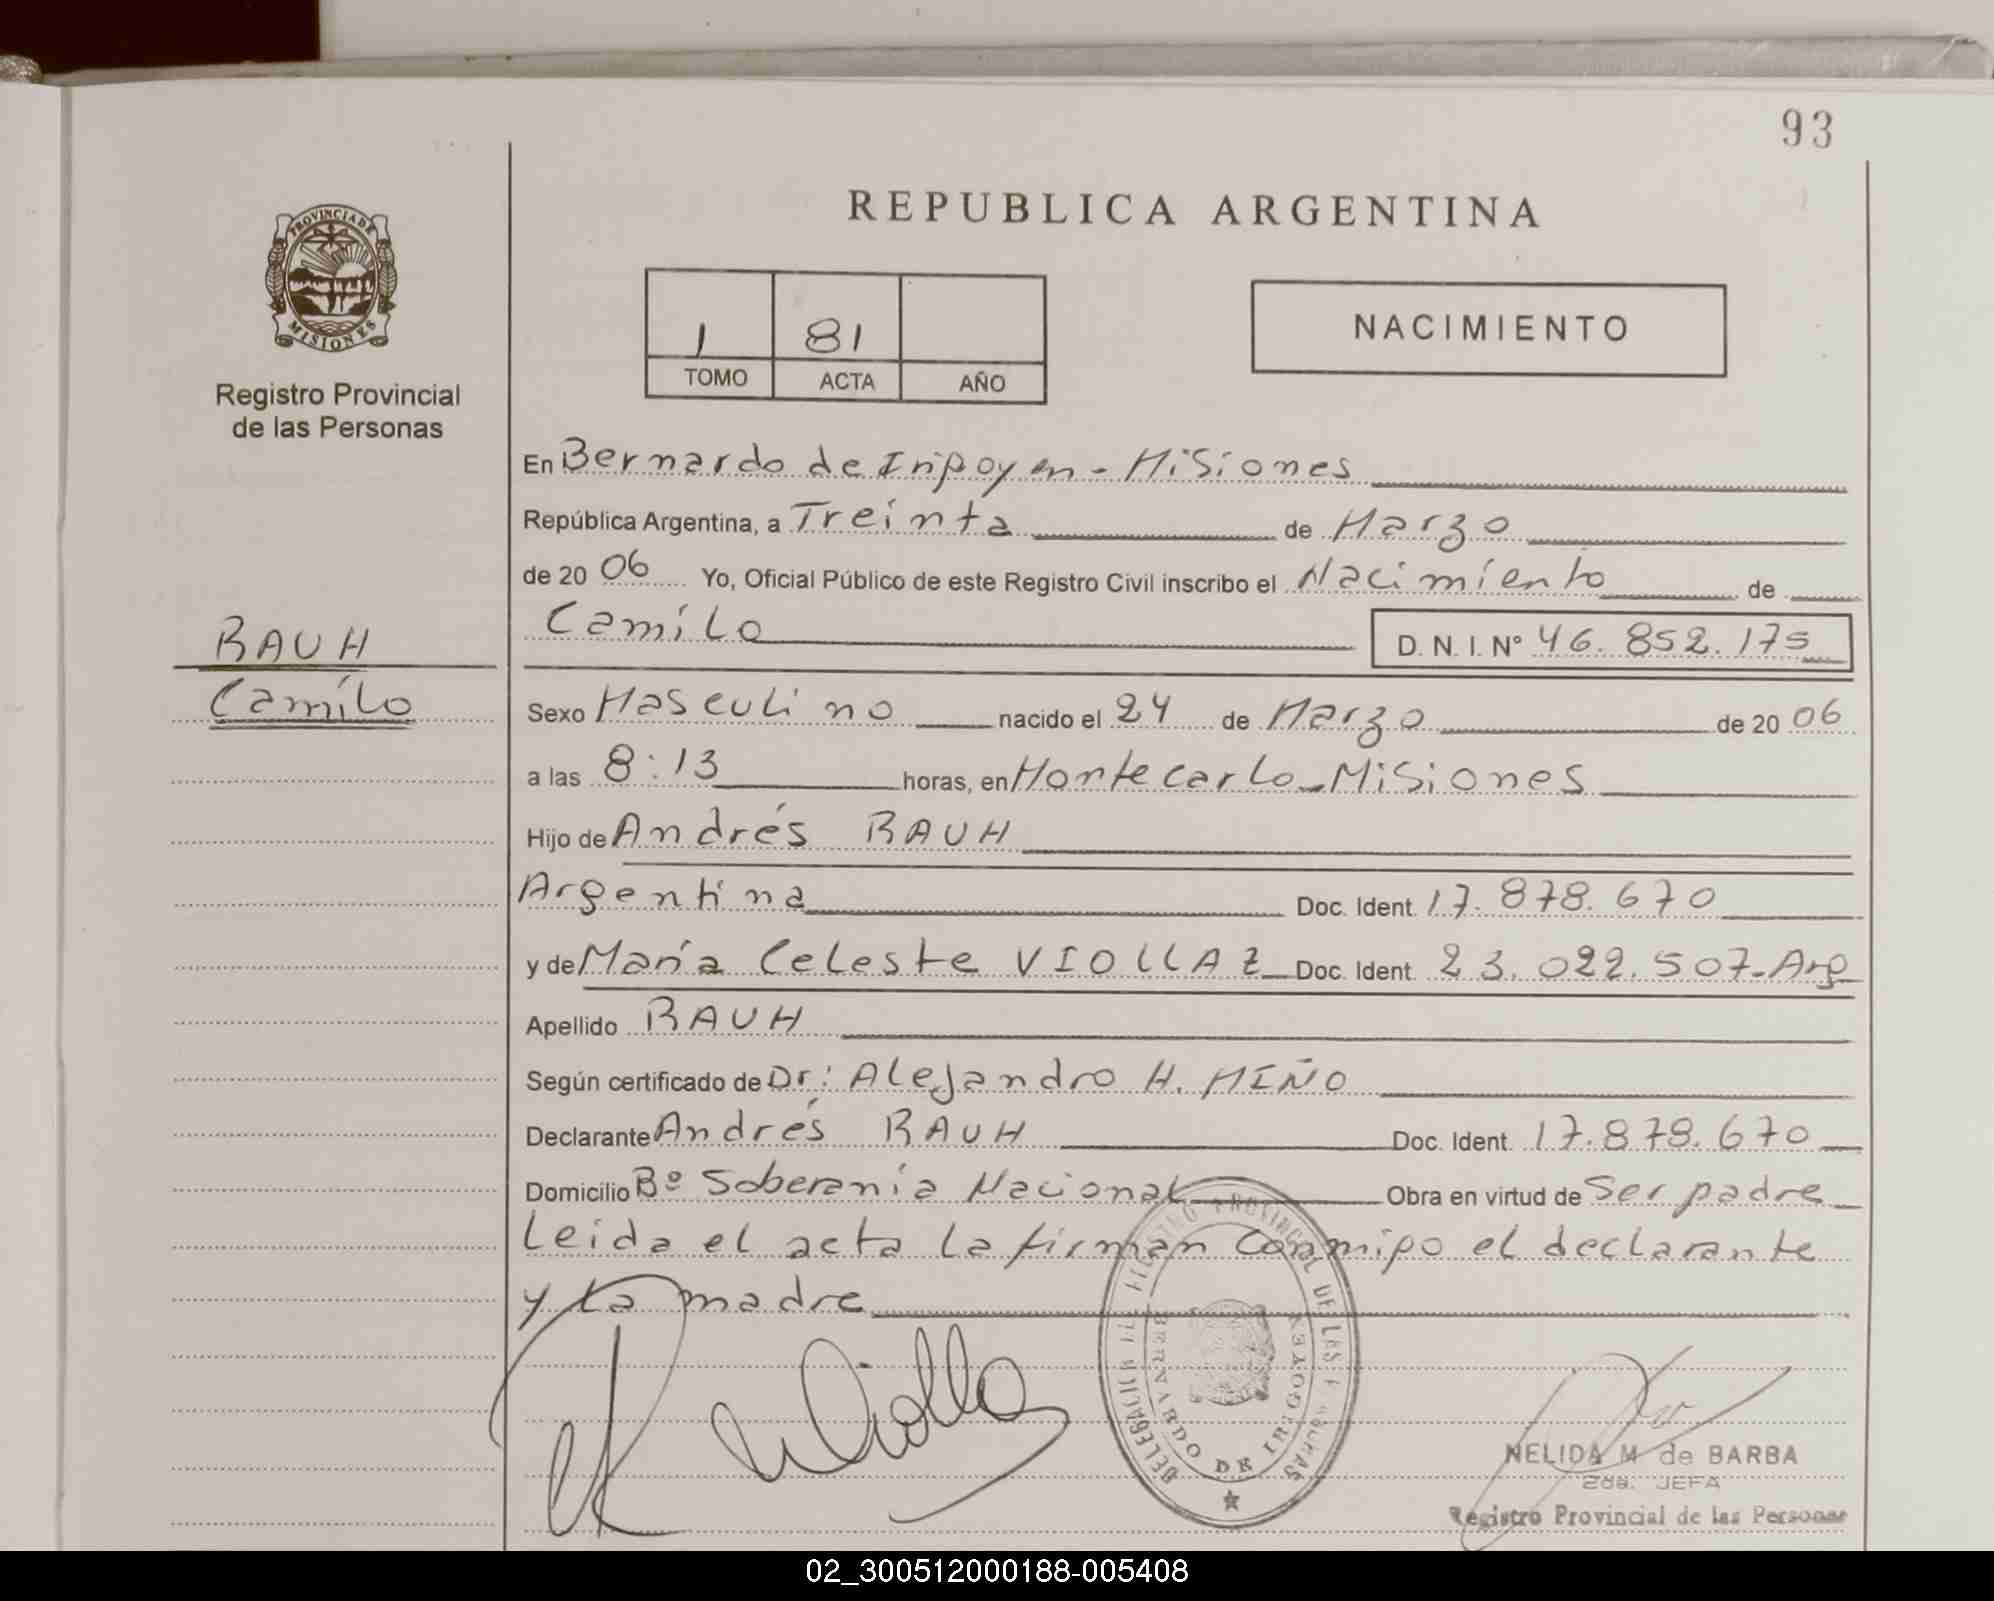 93
PROVINCIA DE
MISIONES
Registro Provincial
de las Personas
REPUBLICA ARGENTINA
1 81
TOMO ACTA AÑO
NACIMIENTO
En Bernardo de Irigoyen - Misiones
República Argentina, a Treinta de Marzo
de 20 06 Yo, Oficial Público de este Registro Civil inscribo el Nacimiento de
Camilo D. N. I. Nº 46.852.175
RAUH
Camilo
Sexo Masculino nacido el 24 de Marzo de 20 06
a las 8:13 horas, en Montecarlo - Misiones
Hijo de Andrés RAUH
Argentina Doc. Ident. 17.878.670
y de María Celeste VIOLLAZ Doc. Ident. 23.022.507-Arg
Apellido RAUH
Según certificado de Dr: Alejandro H. MIÑO
Declarante Andrés RAUH Doc. Ident. 17.878.670
Domicilio Bº Soberanía Nacional Obra en virtud de Ser padre
Leida el acta la firman conmigo el declarante
y la madre
PROVINCIAL DE LAS PERSONAS
BERNARDO DE IRIGOYEN
NELIDA M. de BARBA
2da. JEFA
Registro Provincial de las Personas
02_300512000188-005408